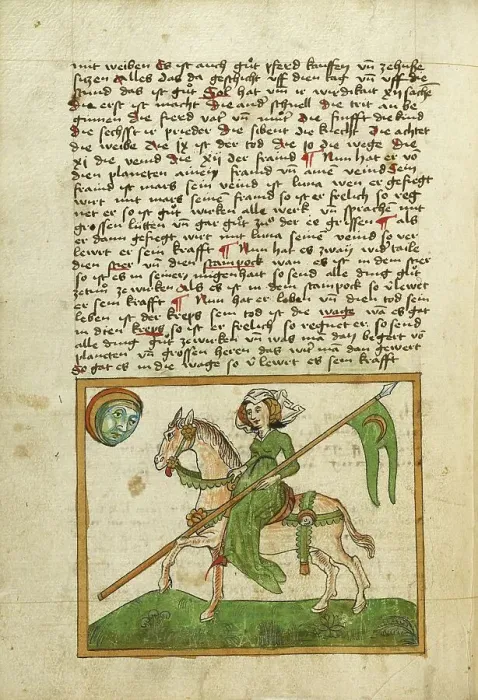 mit weiben Es ist auch gůt pferd kauffen vñ zehuße
sitzen Alles das da geschicht vff dien tag vñ vff die
stund das ist gůt Sol hat vnn ir wirdikait xii sachē
Die erst ist macht die and schnell die trit an be
ginnen die fierd vat vñ můt die funfft die kind
die sechst ir prieder die sibent die knecht die achtet
die weibe die ix ist der tod die x die wege die
xi die veind die xii der fraind ¶ Nun hat er vō
dien planeten ainen fraind vñ ainē veind Sein
fraind ist mars sein veind ist luna wen er gefiegt
wirt mit mars seinē fraind so ist er frelich so reg
net er so ist gůt wirken alle werk vñ sprachē mit
grossen lütten vñ gar gůt zů der ee griffen ¶ als
er dann gefiegt wirt mit luna seinē veind so ver
lewrt er sein krafft ¶ Nun hat es zwai widtaile
dien stier vñ dien stainpock wan es ist in dem stier
so ist es in seiner mugenhait so send alle ding gůt
zetůn zewirken als es ist in dem stainpock so vlewrt
er sein krafft ¶ Nun hat er leben vñ dien tod sein
leben ist der kreps sein tod ist die wage wā es gat
in dien kreps so ist er frelich so regnet er so send
alle ding gůt zewirken vñ was mā dañ begert vō
planeten vñ grossen heren das wirt mā dan gewert
So gat es in die wage so vlewrt es sein krafft